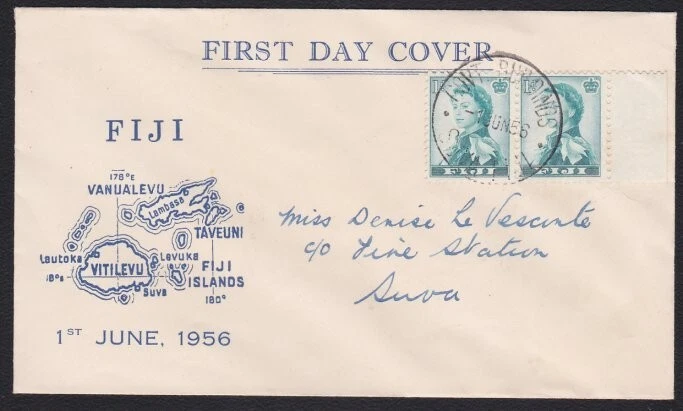 FIRST DAY COVER
FIJI
178°E
VANUALEVU
Lambasa
TAVEUNI
Lautoka
VITILEVU
Levuka
FIJI
ISLANDS
18°S
Suva
180°
1ST JUNE, 1956
FIJI
FIJI
GOVT. BUILDINGS
1 JUN 56
Miss Denise Le Vesconte
c/o Fire Station
Suva